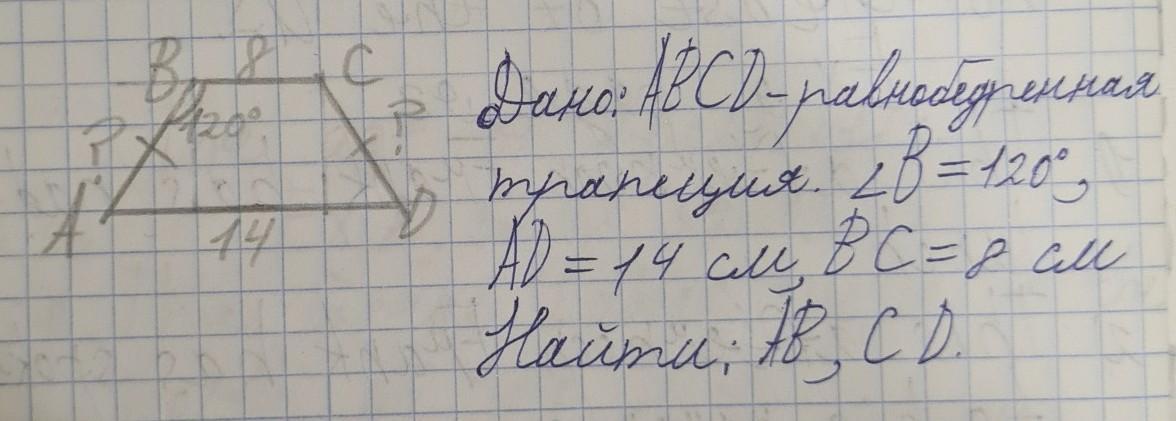 B 8 C
120°
? ?
A 14 D
Дано: ABCD - равнобедренная
трапеция. ∠B = 120°,
AD = 14 см, BC = 8 см
Найти: AB, CD.